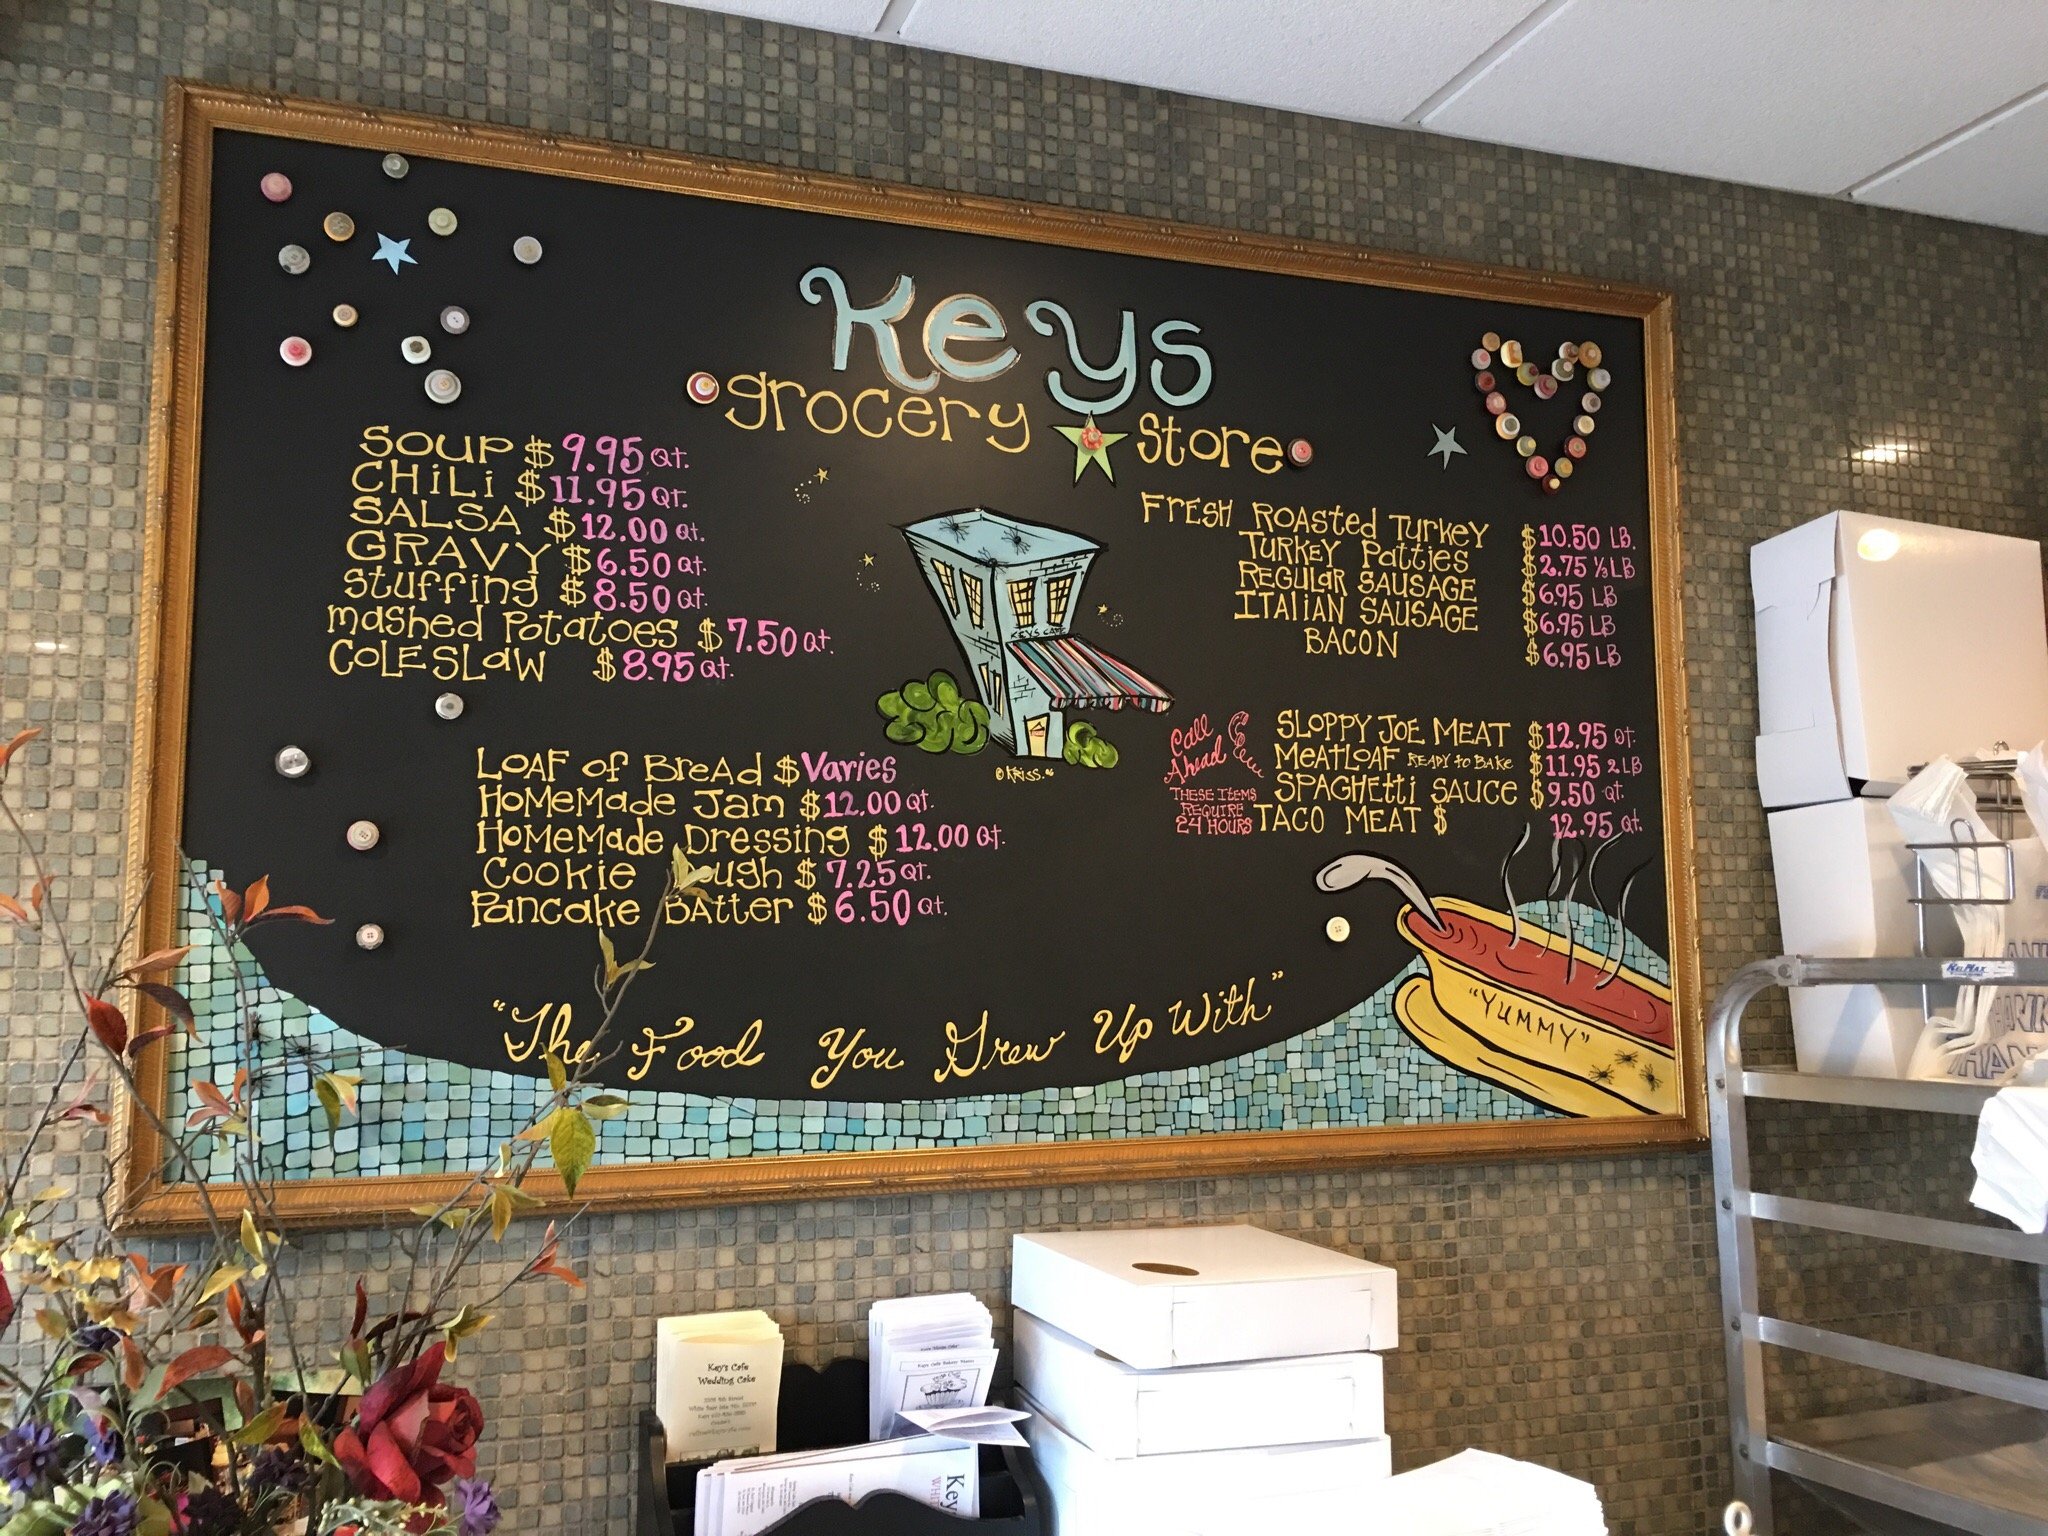 Keys
grocery store
SOUP $ 9.95 QT.
CHILI $ 11.95 QT.
SALSA $ 12.00 QT.
GRAVY $ 6.50 QT.
Stuffing $ 8.50 QT.
mashed Potatoes $ 7.50 QT.
COLESLAW $ 8.95 QT.
FRESH ROASTED TURKEY $ 10.50 LB.
TURKEY Patties $ 2.75 1/3 LB
REGULAR SAUSAGE $ 6.95 LB
ITALIAN SAUSAGE $ 6.95 LB
BACON $ 6.95 LB
KEYS CAFE
© KRISS. 06
LOAF of BREAD $ Varies
HOMEMADE JAM $ 12.00 QT.
HOMEMADE Dressing $ 12.00 QT.
COOKIE ough $ 7.25 QT.
Pancake BATTER $ 6.50 QT.
Call
Ahead
THESE ITEMS
REQUIRE
24 HOURS
SLOPPY JOE MEAT $ 12.95 QT.
MEATLOAF READY to BAKE $ 11.95 2 LB
SPAGHETTI SAUCE $ 9.50 QT.
TACO MEAT $ 12.95 QT.
"The Food You Grew Up With"
"YUMMY"
Key's Cafe
Wedding Cake
Keys Cafe Bakery Menu
Key